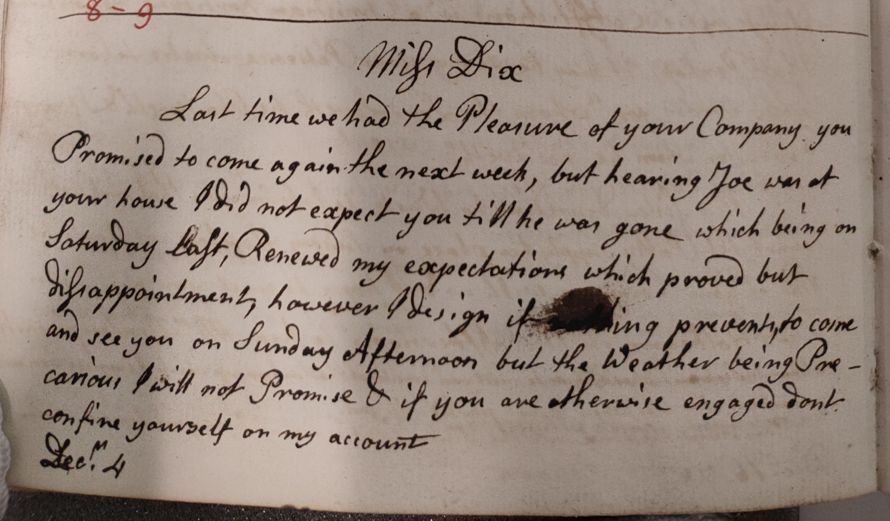 8-9
Miss Dix
Last time we had the Pleasure of your Company you
Promised to come again the next week, but hearing Joe was at
your house I did not expect you till he was gone which being on
Saturday last, Renewed my expectations which proved but
dissappointment, however I design if prevents, to come
and see you on Sunday Afternoon but the Weather being Pre-
carious I will not Promise & if you are otherwise engaged dont
confine yourself on my account
Decr. 4